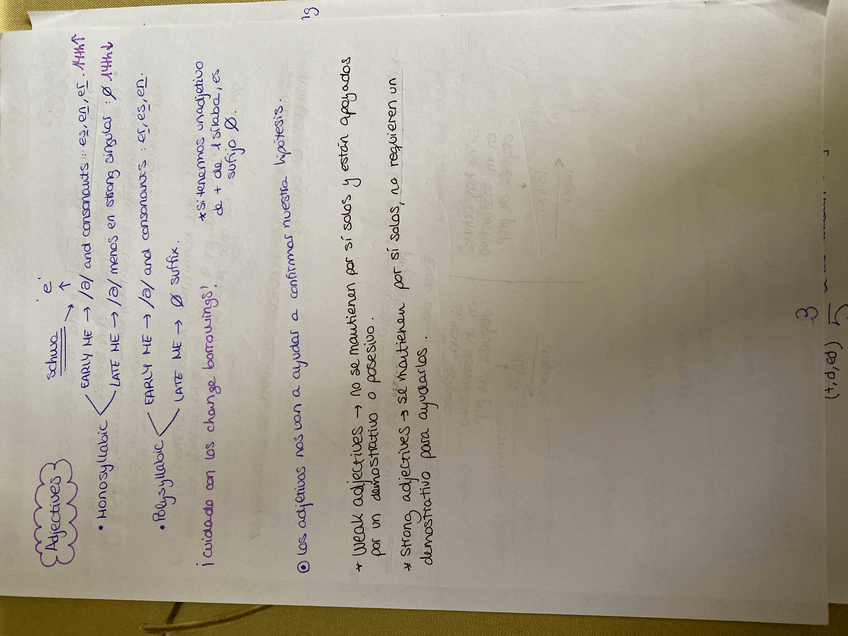 Adjectives
schwa → 'e'
• Monosyllabic
EARLY ME → /ə/ and consonants : es, en, er. 14th↑
LATE ME → /ə/ menos en strong singular : Ø 14th↓
• Polysyllabic
EARLY ME → /ə/ and consonants : er, es, en.
LATE ME → Ø suffix.
¡cuidado con los change borrowings!
*si tenemos un adjetivo
de + de 1 sílaba, es
sufijo Ø.
⦿ Los adjetivos nos van a ayudar a confirmar nuestra hipótesis.
* Weak adjectives → no se mantienen por sí solos y están apoyados
por un demostrativo o posesivo.
* Strong adjectives → se mantienen por sí solos, no requieren un
demostrativo para ayudarlos.
3
(t, d, ed)
5